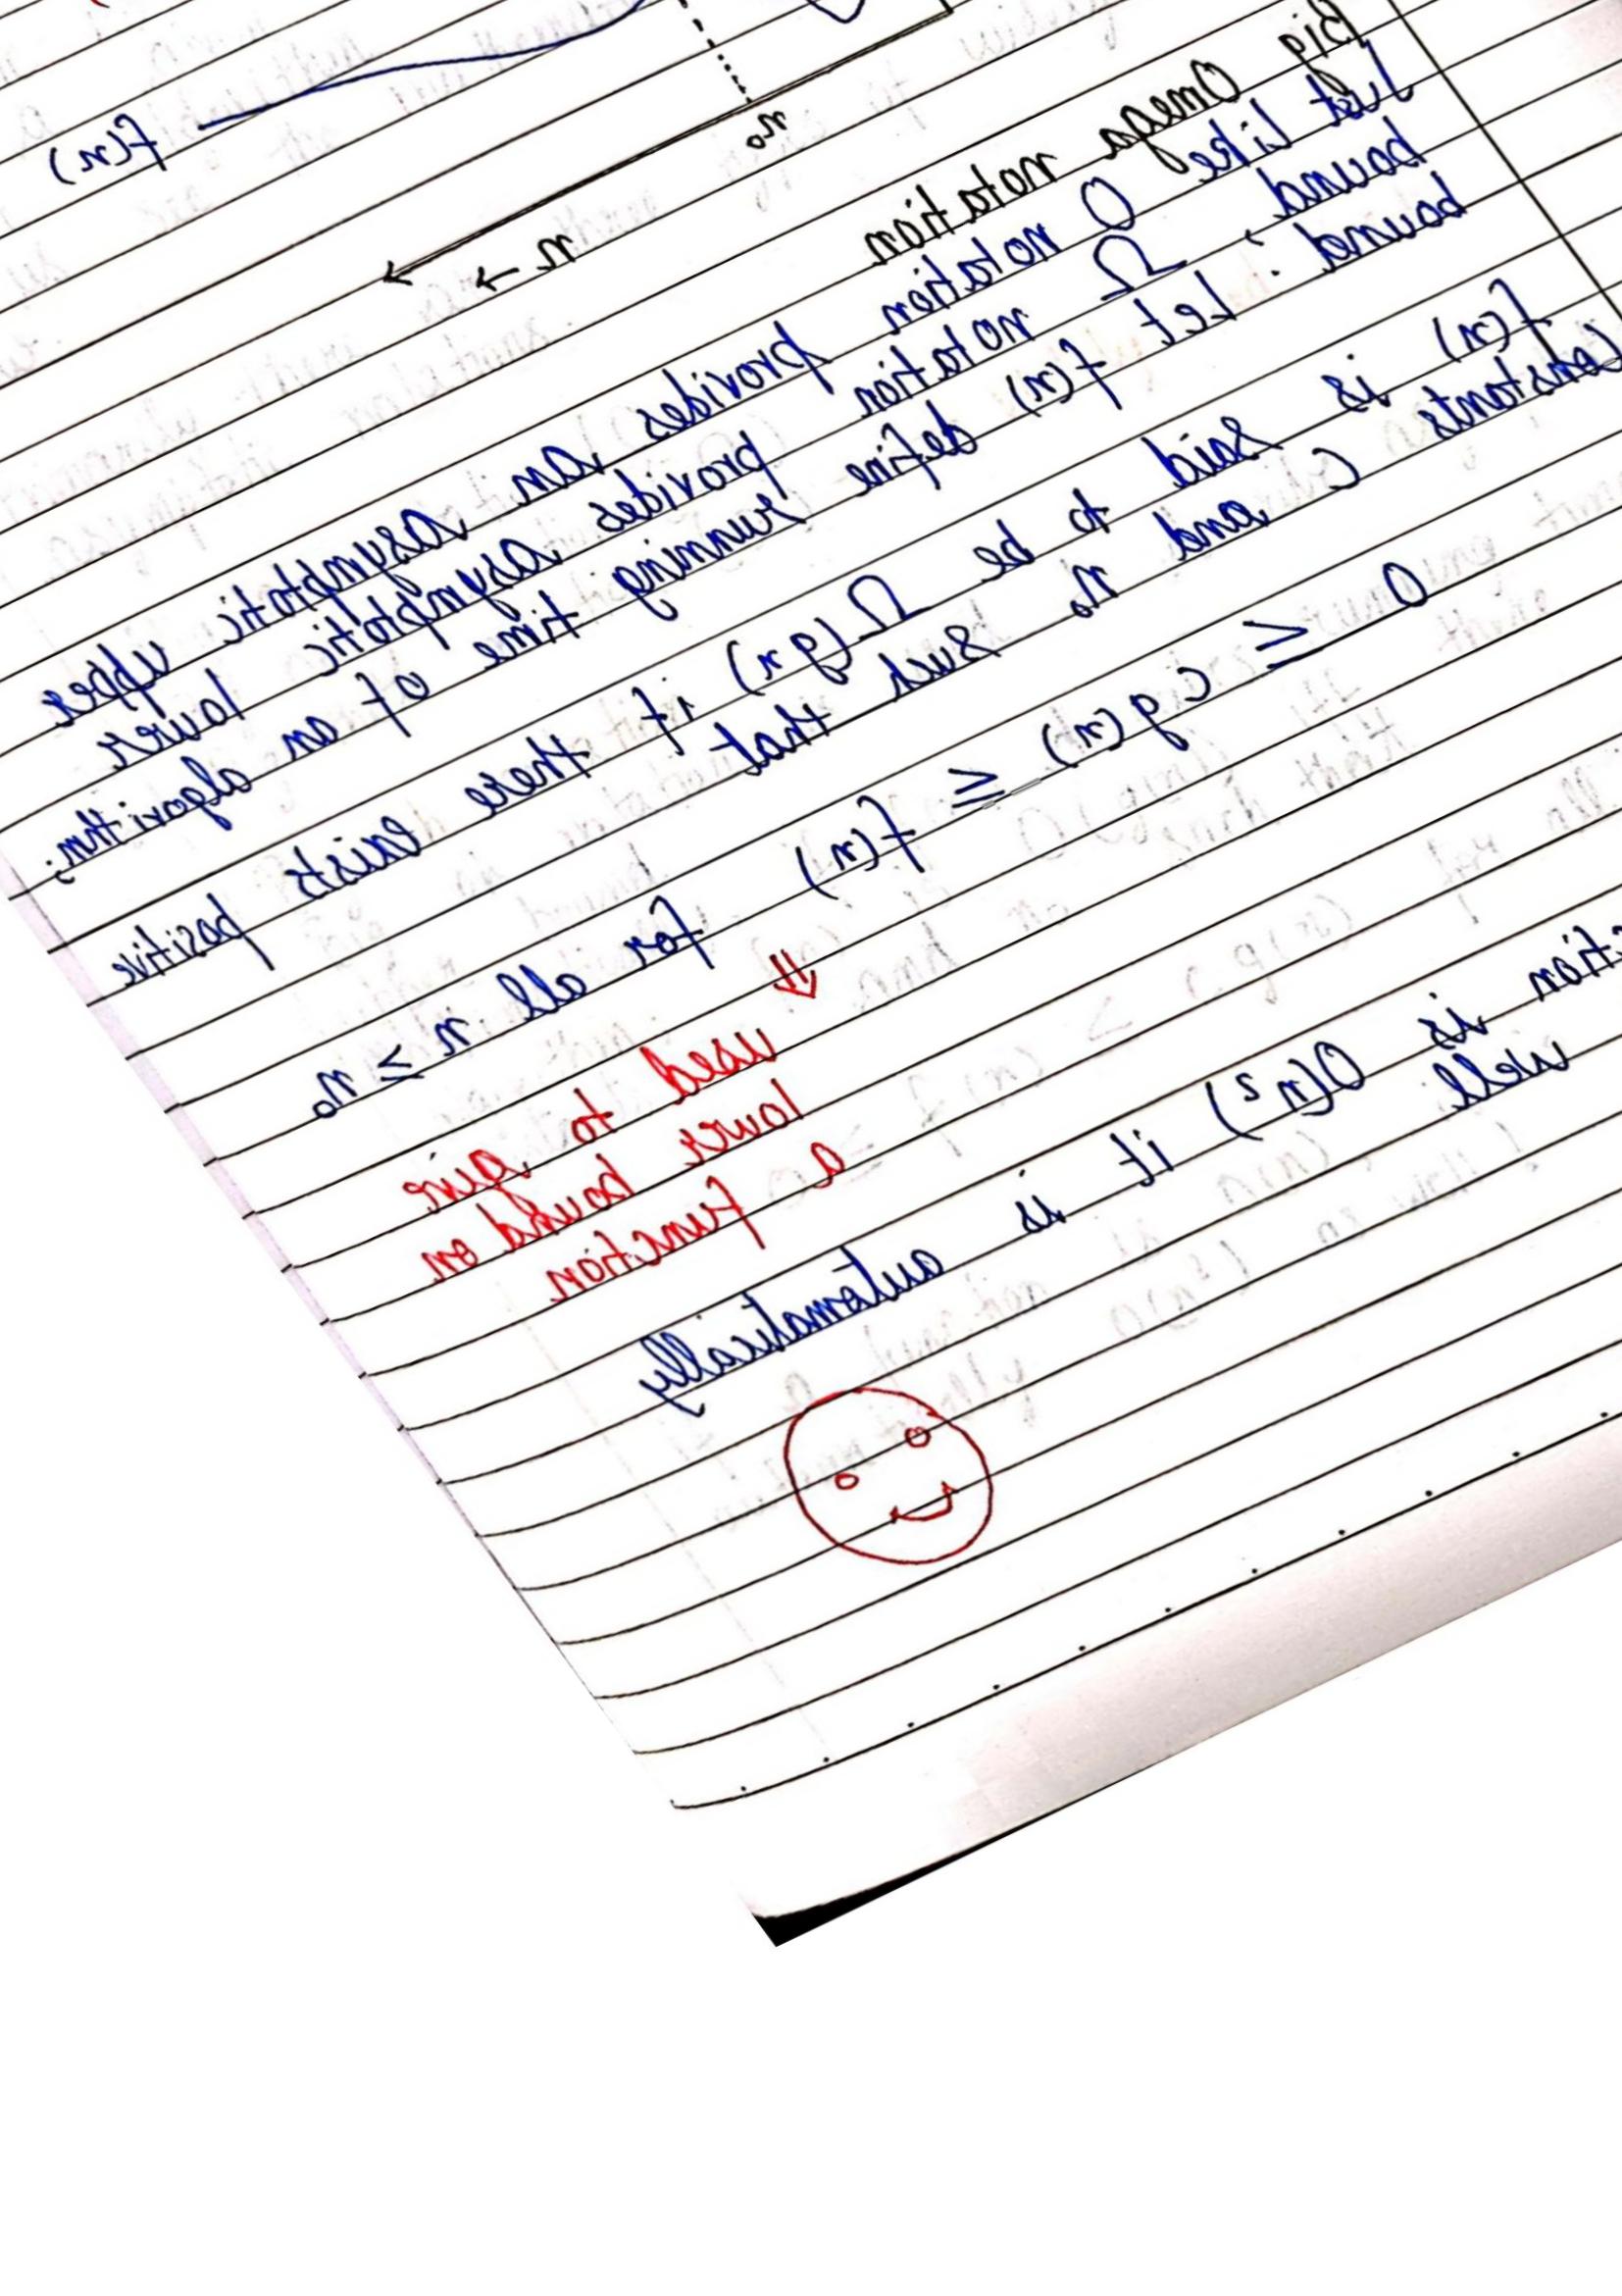 f(n)
n₀
n →
Big Omega notation
Just like O notation provides an asymptotic upper
bound, Ω notation provides asymptotic lower
bound. let f(n) define running time of an algorithm;
f(n) is said to be Ω(g n) if there exists positive
Constants C and n₀ such that
0 ≤ c g(n) ≤ f(n) for all n ≥ n₀
⇓
used to give
lower bound on
a function
is O(n²) it is automatically
well